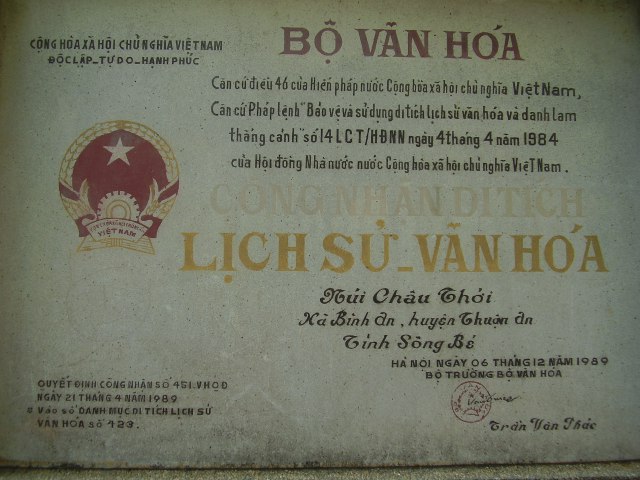 CỘNG HÒA XÃ HỘI CHỦ NGHĨA VIỆT NAM
ĐỘC LẬP_TỰ DO_HẠNH PHÚC
BỘ VĂN HÓA
Căn cứ điều 46 của Hiến pháp nước Cộng hòa xã hội chủ nghĩa Việt Nam,
Căn cứ Pháp lệnh "Bảo vệ và sử dụng di tích lịch sử văn hóa và danh lam
thắng cảnh" số 14 LCT/HĐNN ngày 4 tháng 4 năm 1984
của Hội đồng Nhà nước nước Cộng hòa xã hội chủ nghĩa Việt Nam.
CÔNG NHẬN DI TÍCH
LỊCH SỬ_VĂN HÓA
VIỆT NAM
Núi Châu Thới
Xã Bình An, huyện Thuận An
Tỉnh Sông Bé
HÀ NỘI NGÀY 06 THÁNG 12 NĂM 1989
BỘ TRƯỞNG BỘ VĂN HÓA
Trần Văn Phác
QUYẾT ĐỊNH CÔNG NHẬN SỐ 451.VH.QĐ
NGÀY 21 THÁNG 4 NĂM 1989
Vào sổ DANH MỤC DI TÍCH LỊCH SỬ
VĂN HÓA số 423.